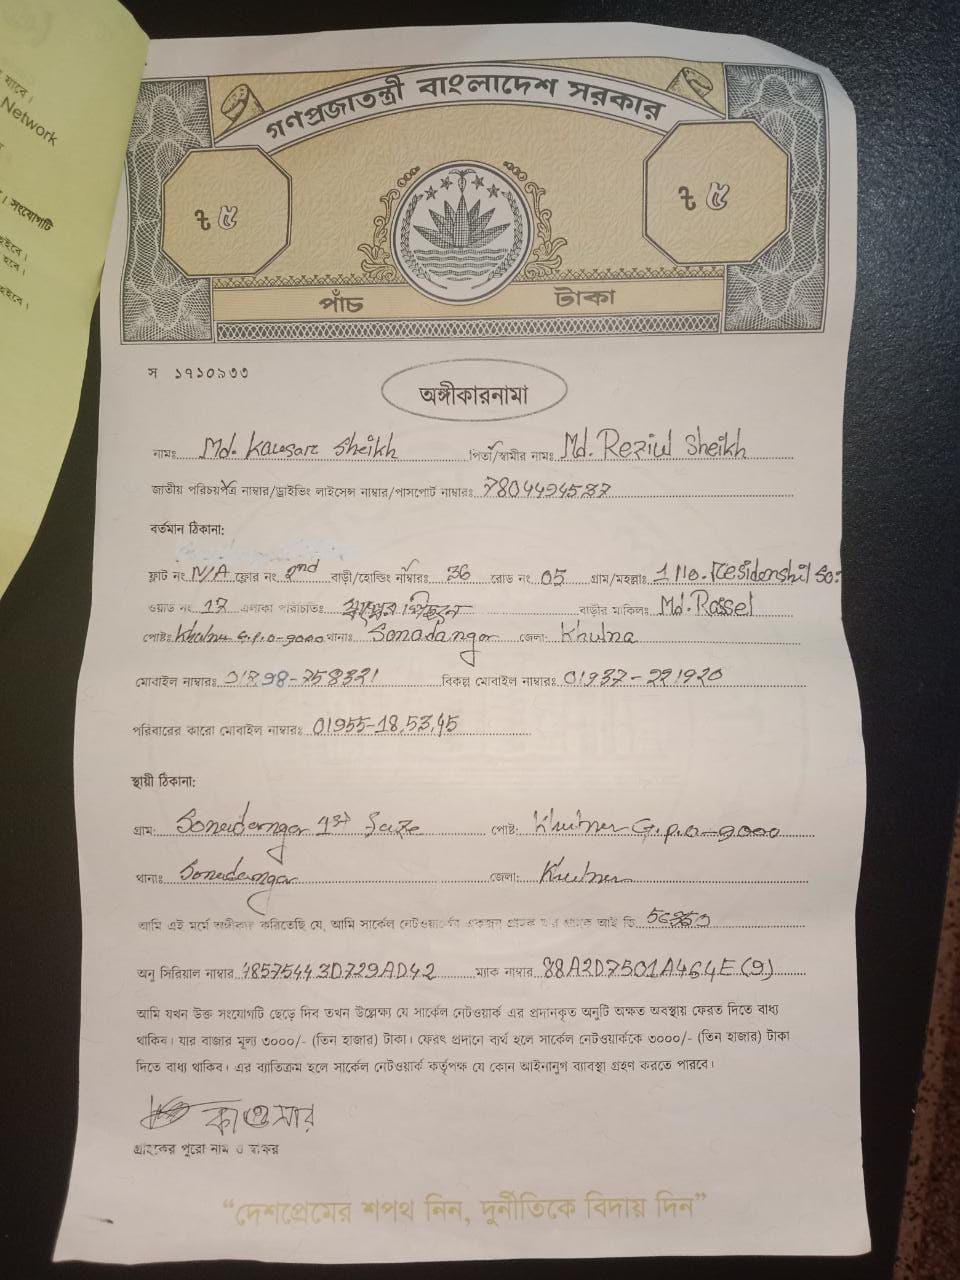 যাবে।
Network
। সংযোগটি
হইবে।
হবে।
হইবে।
গণপ্রজাতন্ত্রী বাংলাদেশ সরকার
৳ ৫
৳ ৫
পাঁচ টাকা
স ১৭১০৯৩৩
অঙ্গীকারনামা
নামঃ Md. Kausar Sheikh পিতা/স্বামীর নামঃ Md. Reziul Sheikh
জাতীয় পরিচয়পত্র নাম্বার/ড্রাইভিং লাইসেন্স নাম্বার/পাসপোর্ট নাম্বারঃ 7804494587
বর্তমান ঠিকানা:
ফ্লাট নং N/A ফ্লোর নং 2nd বাড়ী/হোল্ডিং নাম্বারঃ 36 রোড নং 05 গ্রাম/মহল্লাঃ
ওয়াড নং 17 এলাকা পরিচিতিঃ বাড়ীর মালিকঃ Md. Rassel
পোষ্টঃ Khulna G.p.o-9000 থানাঃ Sonadanga জেলা: Khulna
মোবাইল নাম্বারঃ 01798-758321 বিকল্প মোবাইল নাম্বারঃ 01937-221920
পরিবারের কারো মোবাইল নাম্বারঃ 01955-18,53,45
স্থায়ী ঠিকানা:
গ্রাম: Sonadanga 1st পোষ্ট: Khulna G.p.o-9000
থানাঃ Sonadanga জেলা: Khulna
আমি এই মর্মে অঙ্গীকার করিতেছি যে, আমি সার্কেল নেটওয়ার্কের একজন গ্রাহক যার গ্রাহক আই ডি
অনু সিরিয়াল নাম্বার 48575443D729AD42 ম্যাক নাম্বার 88A2D7501A464E(9)
আমি যখন উক্ত সংযোগটি ছেড়ে দিব তখন উল্লেক্ষ্য যে সার্কেল নেটওয়ার্ক এর প্রদানকৃত অনুটি অক্ষত অবস্থায় ফেরত দিতে বাধ্য
থাকিব। যার বাজার মূল্য ৩০০০/- (তিন হাজার) টাকা। ফেরৎ প্রদানে ব্যর্থ হলে সার্কেল নেটওয়ার্ককে ৩০০০/- (তিন হাজার) টাকা
দিতে বাধ্য থাকিব। এর ব্যাতিক্রম হলে সার্কেল নেটওয়ার্ক কর্তৃপক্ষ যে কোন আইনানুগ ব্যাবস্থা গ্রহণ করতে পারবে।
কাওসার
গ্রাহকের পুরো নাম ও স্বাক্ষর
“দেশপ্রেমের শপথ নিন, দুর্নীতিকে বিদায় দিন”